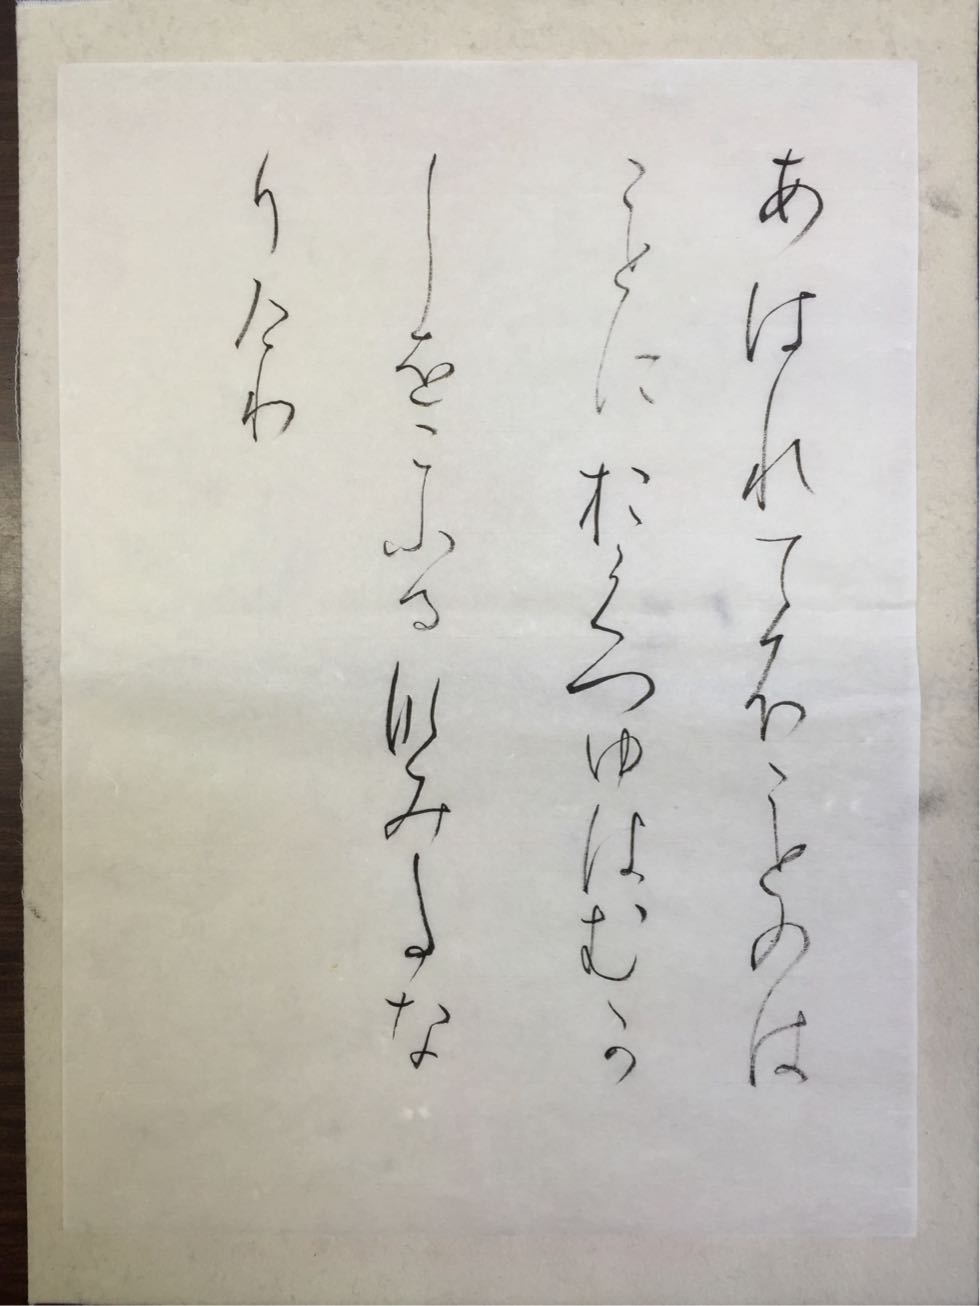 あはれてふことのは
ことにおくつゆはむか
しをこふるなみたな
りけり